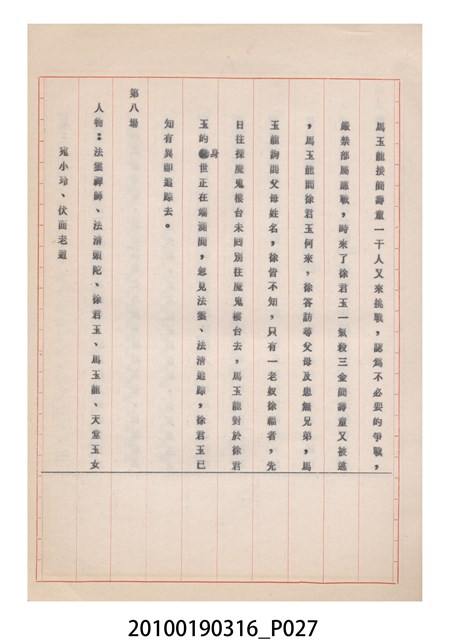 馬玉龍接簡壽童一干人又來挑戰，認為不必要的爭戰，
嚴禁部屬應戰，時來了徐君玉一氣殺三金簡壽童又被逃
，馬玉龍問徐君玉何來，徐答訪尋父母及患無兄弟，馬
玉龍詢問父母姓名，徐皆不知，只有一老奴徐福者，先
日往探魔鬼樓台未回別往魔鬼樓台去，馬玉龍對於徐君
玉的身世正在端詳間，忽見法、法清追踪，徐君玉已
知有異即追踪去。
第八場
人物：法禪師、法清頭陀、徐君玉、馬玉龍、天堂玉女
小玲、伏面老道
20100190316_P027